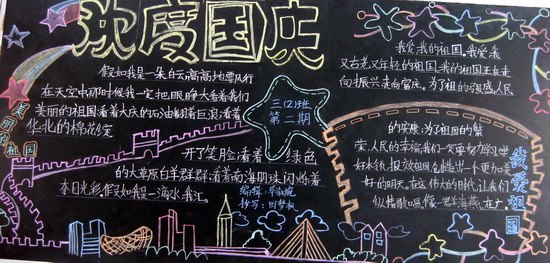 欢度国庆
假如我是一朵白云高高地飘风行
在天空中那时候我一定把眼睁大看着我们
美丽的祖国看着大庆的石油翻着巨浪看着
华北的棉花绽
开了笑脸看着 绿色
的大草原白羊群群看着南海明珠闪烁着
本日光彩假如我是一滴水我汇
三(2)班
第二期
编辑
抄写
美丽的祖国
我爱我的祖国我爱我
又古老又年轻的祖国我的祖国正在走
向振兴走向富庶为了祖的强盛人民
的安康为了祖国的繁
荣人民的幸福我们一定要努力学习学
好本领报效祖国创造出一个更加美
好的明天在这伟大的时代让我们
纵情歌唱像一群海燕在广
我爱祖国